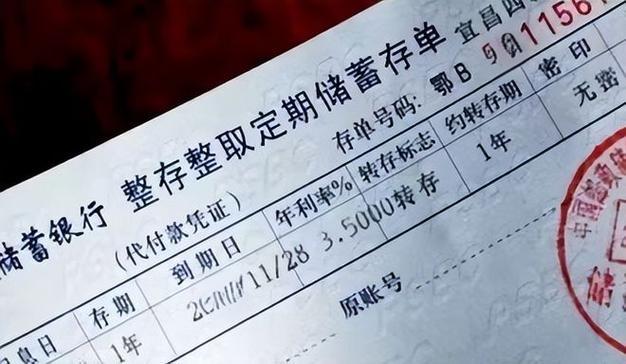 储蓄银行 整存整取定期储蓄存单 宜昌
(代付款凭证) 存单号码: 鄂B
存期 到期日 年利率% 转存标志 约转存期 密印
1年 11/28 3.5000 转存 1年 无密
息日
原账号